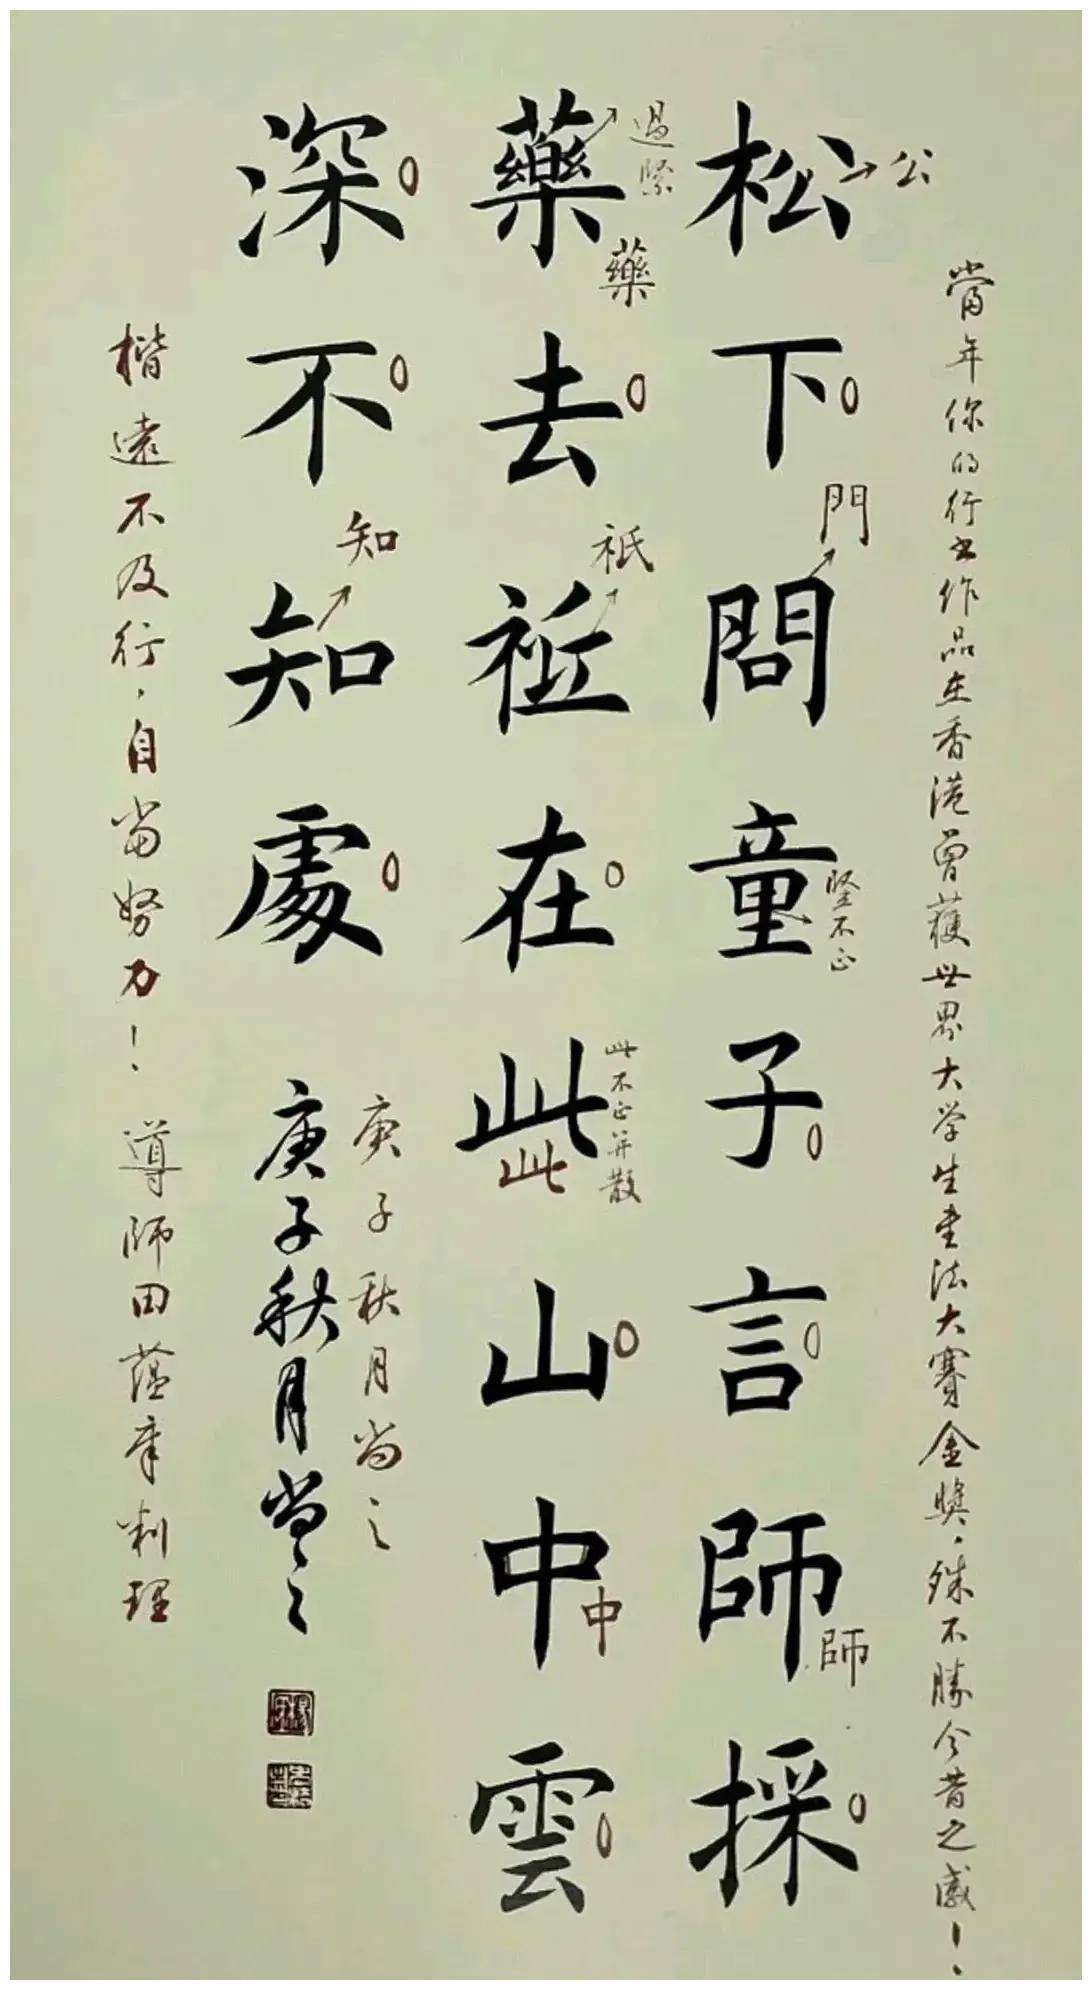 當年你的行书作品在香港曾獲世界大学生书法大賽金奬，殊不勝今昔之感！
公
松下問童子言師採
門
竪不正
師
過緊
藥
藥去祗在此山中雲
祇
此不正并散
此
中
深不知處
知
庚子秋月尚之
庚子秋月尚之
楷遠不及行，自当努力！導師田蕴章制理